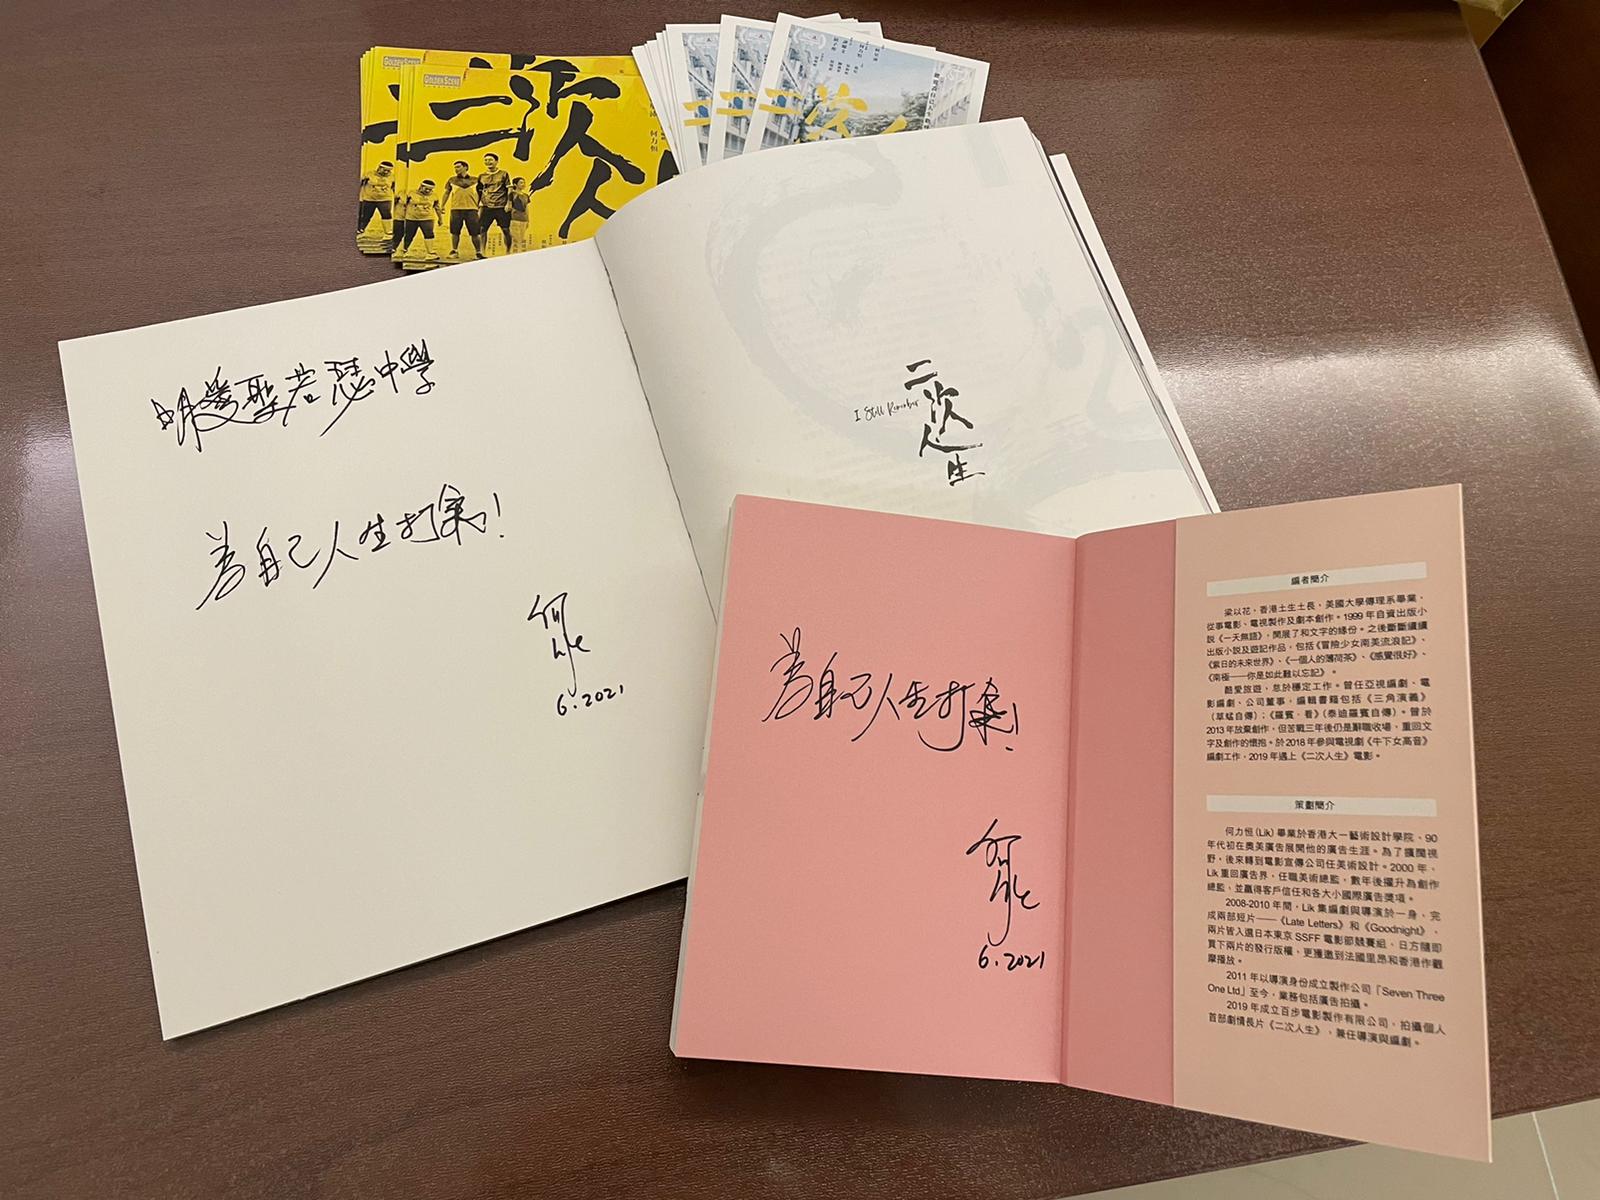 GOLDEN SCENE
GOLDEN SCENE
二次人
何力恒
二次人
明愛聖若瑟中學
為自己人生打氣!
何 Lik
6.2021
I Still Remember
二次人生
為自己人生打氣!
何 Lik
6.2021
編者簡介
梁以花，香港土生土長，美國大學傳理系畢業，
從事電影、電視製作及劇本創作。1999年自資出版小
說《一天無語》，開展了和文字的緣份。之後斷斷續續
出版小說及遊記作品，包括《冒險少女南美流浪記》、
《紫日的未來世界》、《一個人的薄荷茶》、《感覺很好》、
《南極——你是如此難以忘記》。
酷愛旅遊，怠於穩定工作。曾任亞視編劇、電
影編劇、公司董事，編輯書籍包括《三角演義》
（草蜢自傳）；《羅賓．看》（泰迪羅賓自傳）。曾於
2013年放棄創作，但苦戰三年後仍是辭職收場，重回文
字及創作的懷抱。於2018年參與電視劇《牛下女高音》
編劇工作，2019年遇上《二次人生》電影。
策劃簡介
何力恒（Lik）畢業於香港大一藝術設計學院、90
年代初在奧美廣告展開他的廣告生涯。為了擴闊視
野，後來轉到電影宣傳公司任美術設計。2000年，
Lik重回廣告界，任職美術總監，數年後擢升為創作
總監，並贏得客戶信任和各大小國際廣告獎項。
2008-2010年間，Lik集編劇與導演於一身，完
成兩部短片——《Late Letters》和《Goodnight》，
兩片皆入選日本東京SSFF電影節競賽組，日方隨即
買下兩片的發行版權，更獲邀到法國里昂和香港作觀
摩播放。
2011年以導演身份成立製作公司「Seven Three
One Ltd」至今，業務包括廣告拍攝。
2019年成立百步電影製作有限公司，拍攝個人
首部劇情長片《二次人生》，兼任導演與編劇。